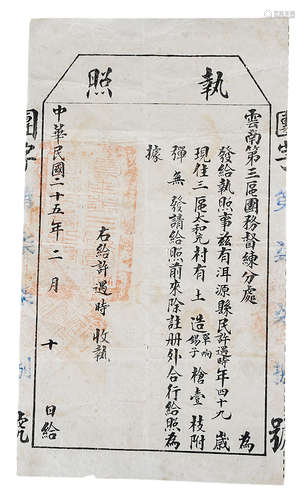 執照
雲南第三區團務督練分處 為
發給執照事茲有洱源縣民許遇時年四十九歲
現住三區太和村有土造單响錫子槍壹枝附
彈無發請給照前來除註冊外合行給照為
據
右給許遇時 收執
中華民國二十五年二月 十 日給
團字
號